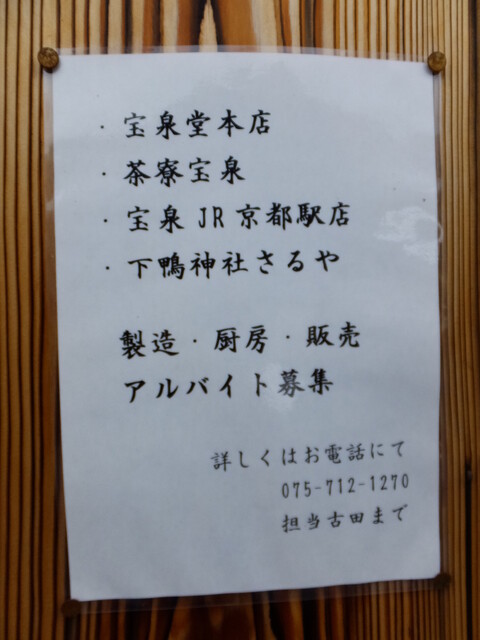 ・宝泉堂本店
・茶寮宝泉
・宝泉JR京都駅店
・下鴨神社さるや
製造・厨房・販売
アルバイト募集
詳しくはお電話にて
075-712-1270
担当古田まで